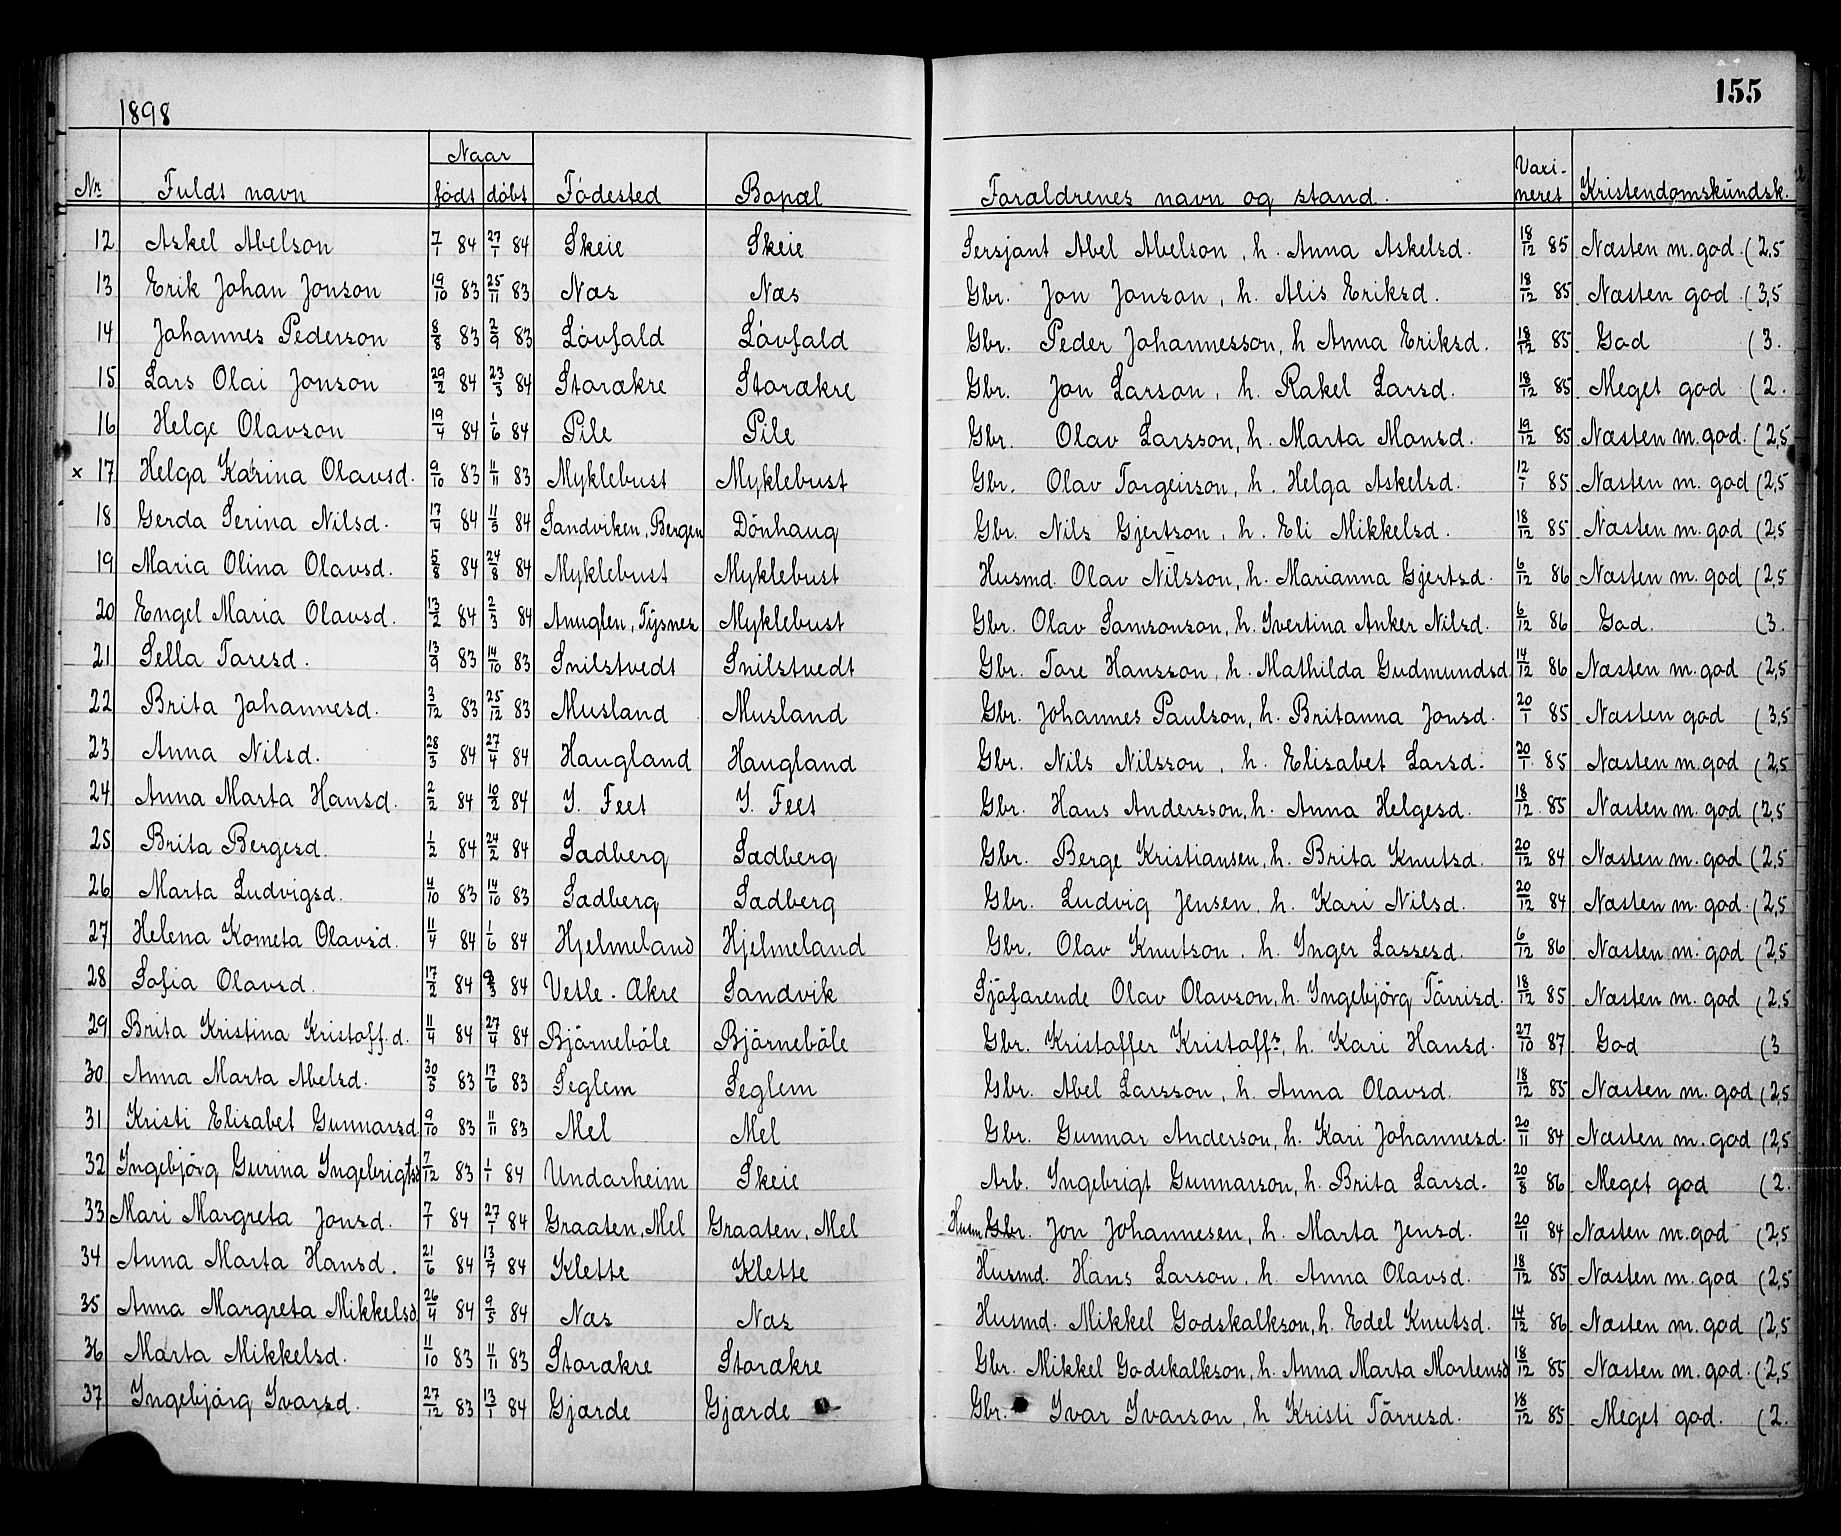 155
1898
Nr. Fuldt navn Naar født døbt Fødested Bopæl Forældrenes navn og stand. Vaxineret Kristendomskundsk.
12 Askel Abelson 7/1 84 27/1 84 Skeie Skeie Sersjant Abel Abelson, h. Anna Askelsd. 18/12 85 Næsten m. god (2,5
13 Erik Johan Jonson 19/10 83 25/11 83 Næs Næs Gbr. Jon Jonson, h. Alis Eriksd. 18/12 85 Næsten god (3,5
14 Johannes Pederson 8/8 83 2/9 83 Løvfald Løvfald Gbr. Peder Johannesson, h Anna Eriksd. 18/12 85 God (3.
15 Lars Olai Jonson 29/2 84 23/3 84 Storækre Storækre Gbr. Jon Larson, h. Rakel Larsd. 18/12 85 Meget god (2.
16 Helge Olavson 19/4 84 1/6 84 Pile Pile Gbr. Olav Larsson, h. Marta Monsd. 19/12 85 Næsten m. god. (2,5
x 17 Helga Katrina Olavsd. 9/10 83 11/11 83 Myklebust Myklebust Gbr. Olav Torgeirson, h. Helga Askelsd. 12/1 85 Næsten m. god (2,5
18 Gerda Serina Nilsd. 17/4 84 11/5 84 Sandviken, Bergen Dønhaug Gbr. Nils Gjertson, h. Eli Mikkelsd. 18/12 85 Næsten m. god (2,5
19 Maria Olina Olavsd. 5/8 84 24/8 84 Myklebust Myklebust Husmd. Olav Nilsson, h. Marianna Gjertsd. 6/12 86 Næsten m. god (2,5
20 Engel Maria Olavsd. 13/2 84 2/3 84 Anuglen, Tysnes Myklebust Gbr. Olav Samsonson, h. Ivertina Anker Nilsd. 6/12 86 God. (3.
21 Sella Toresd. 13/9 83 14/10 83 Snilstvedt Snilstvedt Gbr. Tore Hansson, h. Mathilda Gudmundsd 14/12 86 Næsten m. god (2,5
22 Brita Johannesd. 3/12 83 25/12 83 Musland Musland Gbr. Johannes Paulson, h. Britanna Jonsd. 20/1 85 Næsten god (3,5
23 Anna Nilsd. 28/3 84 27/4 84 Haugland Haugland Gbr. Nils Nilsson, h. Elisabet Larsd. 20/1 85 Næsten m. god (2,5
24 Anna Marta Hansd. 2/2 84 10/2 84 I. Feet I. Feet Gbr. Hans Andersson, h. Anna Helgesd. 18/12 85 Næsten m. god (2,5
25 Brita Bergesd. 1/2 84 24/2 84 Sædberg Sædberg Gbr. Berge Kristiansen, h. Brita Knutsd. 20/12 84 Næsten m. god (2,5
26 Marta Ludvigsd. 4/10 83 14/10 83 Sædberg Sædberg Gbr. Ludvig Jensen, h. Kari Nilsd. 20/12 84 Næsten m. god. (2,5
27 Helena Kometa Olavsd. 11/4 84 1/6 84 Hjelmeland Hjelmeland Gbr. Olav Knutson, h. Inger Lassesd. 6/12 86 Næsten m. god (2,5
28 Sofia Olavsd. 17/2 84 9/3 84 Vetle. Ækre Sandvik Sjøfarende Olav Olavson, h. Ingebjørg Tørrisd. 18/12 85 Næsten m. god (2,5
29 Brita Kristina Kristoff.d. 11/4 84 27/4 84 Bjørnebøle Bjørnebøle Gbr. Kristoffer Kristoffs, h. Kari Hansd. 27/10 87 God (3
30 Anna Marta Abelsd. 30/5 83 17/6 83 Seglem Seglem Gbr. Abel Larsson, h. Anna Olavsd. 18/12 85 Næsten m. god (2,5
31 Kristi Elisabet Gunnarsd 9/10 83 11/11 83 Mel Mel Gbr. Gunnar Anderson, h. Kari Johannesd. 20/11 84 Næsten m. god (2,5
32 Ingebjørg Gurina Ingebrigtsd 7/12 83 1/1 84 Undarheim Skeie Arb. Ingebrigt Gunnarson, h. Brita Larsd. 20/8 86 Meget god (2.
33 Mari Margreta Jonsd. 7/1 84 27/1 84 Graaten, Mel Graaten, Mel Husm Gbr. Jon Johannesen, h. Marta Jensd. 20/11 84 Næsten m. god (2,5
34 Anna Marta Hansd. 21/6 84 13/7 84 Klette Klette Husmd. Hans Larson, h. Anna Olavsd. 18/12 85 Næsten m. god (2,5
35 Anna Margreta Mikkelsd 26/4 84 9/5 84 Næs Næs Husmd. Mikkel Godskalkson, h. Edel Knutsd. 14/12 86 Næsten m. god (2,5
36 Marta Mikkelsd. 11/10 83 11/11 83 Storækre Storækre Gbr. Mikkel Godskalkson, h. Anna Marta Mortensd 18/12 85 Næsten m. god. (2,5
37 Ingebjørg Ivarsd. 27/12 83 13/1 84 Gjærde Gjærde Gbr. Ivar Ivarson, h Kristi Tørresd. 18/12 85 Meget god. (2.